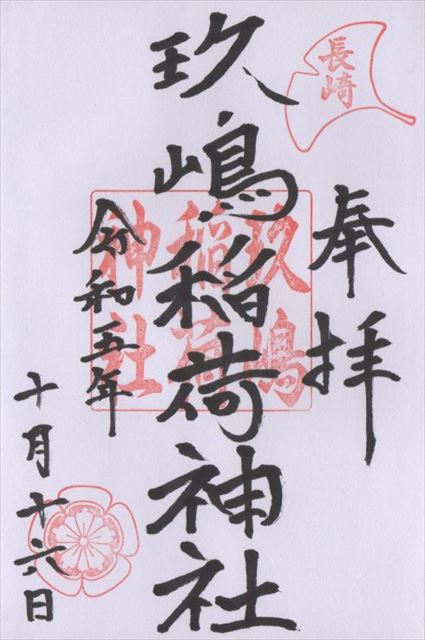 長崎
奉拝
玖嶋稲荷神社
玖嶋
稲荷
神社
令和五年
十月十六日